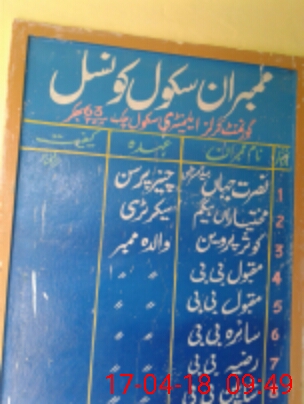 ممبران سکول کونسل
گورنمنٹ گرلز ایلیمنٹری سکول چک 63
نام ممبران عہدہ کیفیت
1 نصرت جہاں چیئر پرسن
2 مختیاراں بیگم سیکرٹری
3 کوثر پروین والدہ ممبر
4 مقبول بی بی 〃 〃
5 مقبول بی بی 〃 〃
6 سائرہ بی بی 〃 〃
7 رضیہ بی بی 〃 〃
8 بی بی 〃 〃
17-04-18 09:49